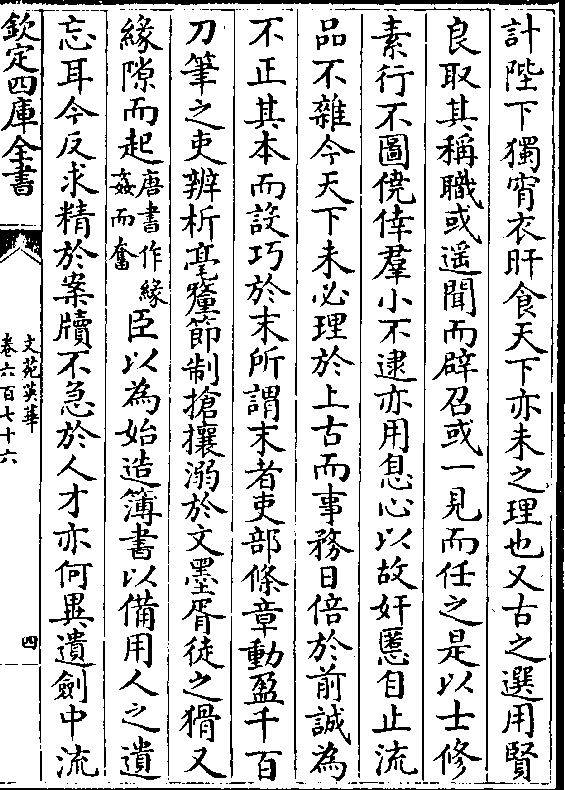 計陛下獨宵衣旰食天下亦未之理也又古之選用賢
良取其稱職或遥聞而辟召或一見而任之是以士修
素行不圖僥倖羣小不逮亦用息心以故奸慝自止流
品不雜今天下未必理於上古而事務日倍於前誠為
不正其本而設巧於末所謂末者吏部條章動盈千百
刀筆之吏辨析毫釐節制搶攘溺於文墨胥徒之猾又
緣隙而起唐書作緣姦而奮臣以為始造簿書以備用人之遺
忘耳今反求精於案牘不急於人才亦何異遺劍中流
欽定四庫全書
文苑英華
卷六百七十六
四